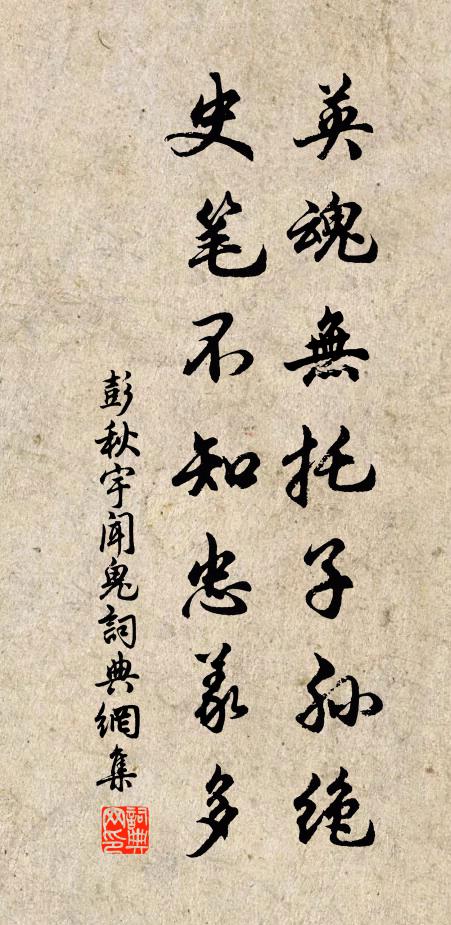 英魂無托子孙绝
史笔不知忠义多
彭秋宇闻鬼詞典網集
詞典网印